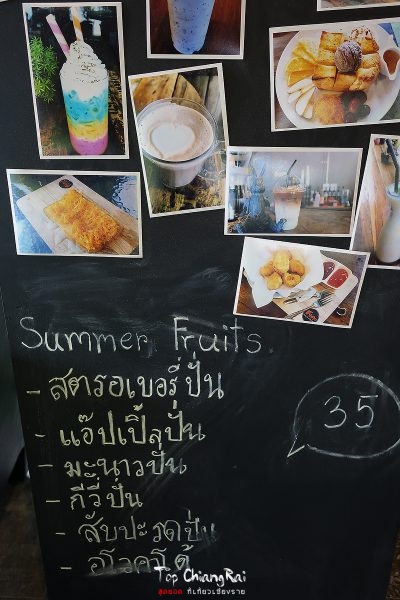 Summer Fruits.
- สตรอเบอรี่ปั่น
- แอ๊ปเปิ้ลปั่น
- มะนาวปั่น
- กีวี่ปั่น
- สับปะรดปั่น
- อโวคาโด้
35
Top ChiangRai
สุดยอด ที่เที่ยวเชียงราย